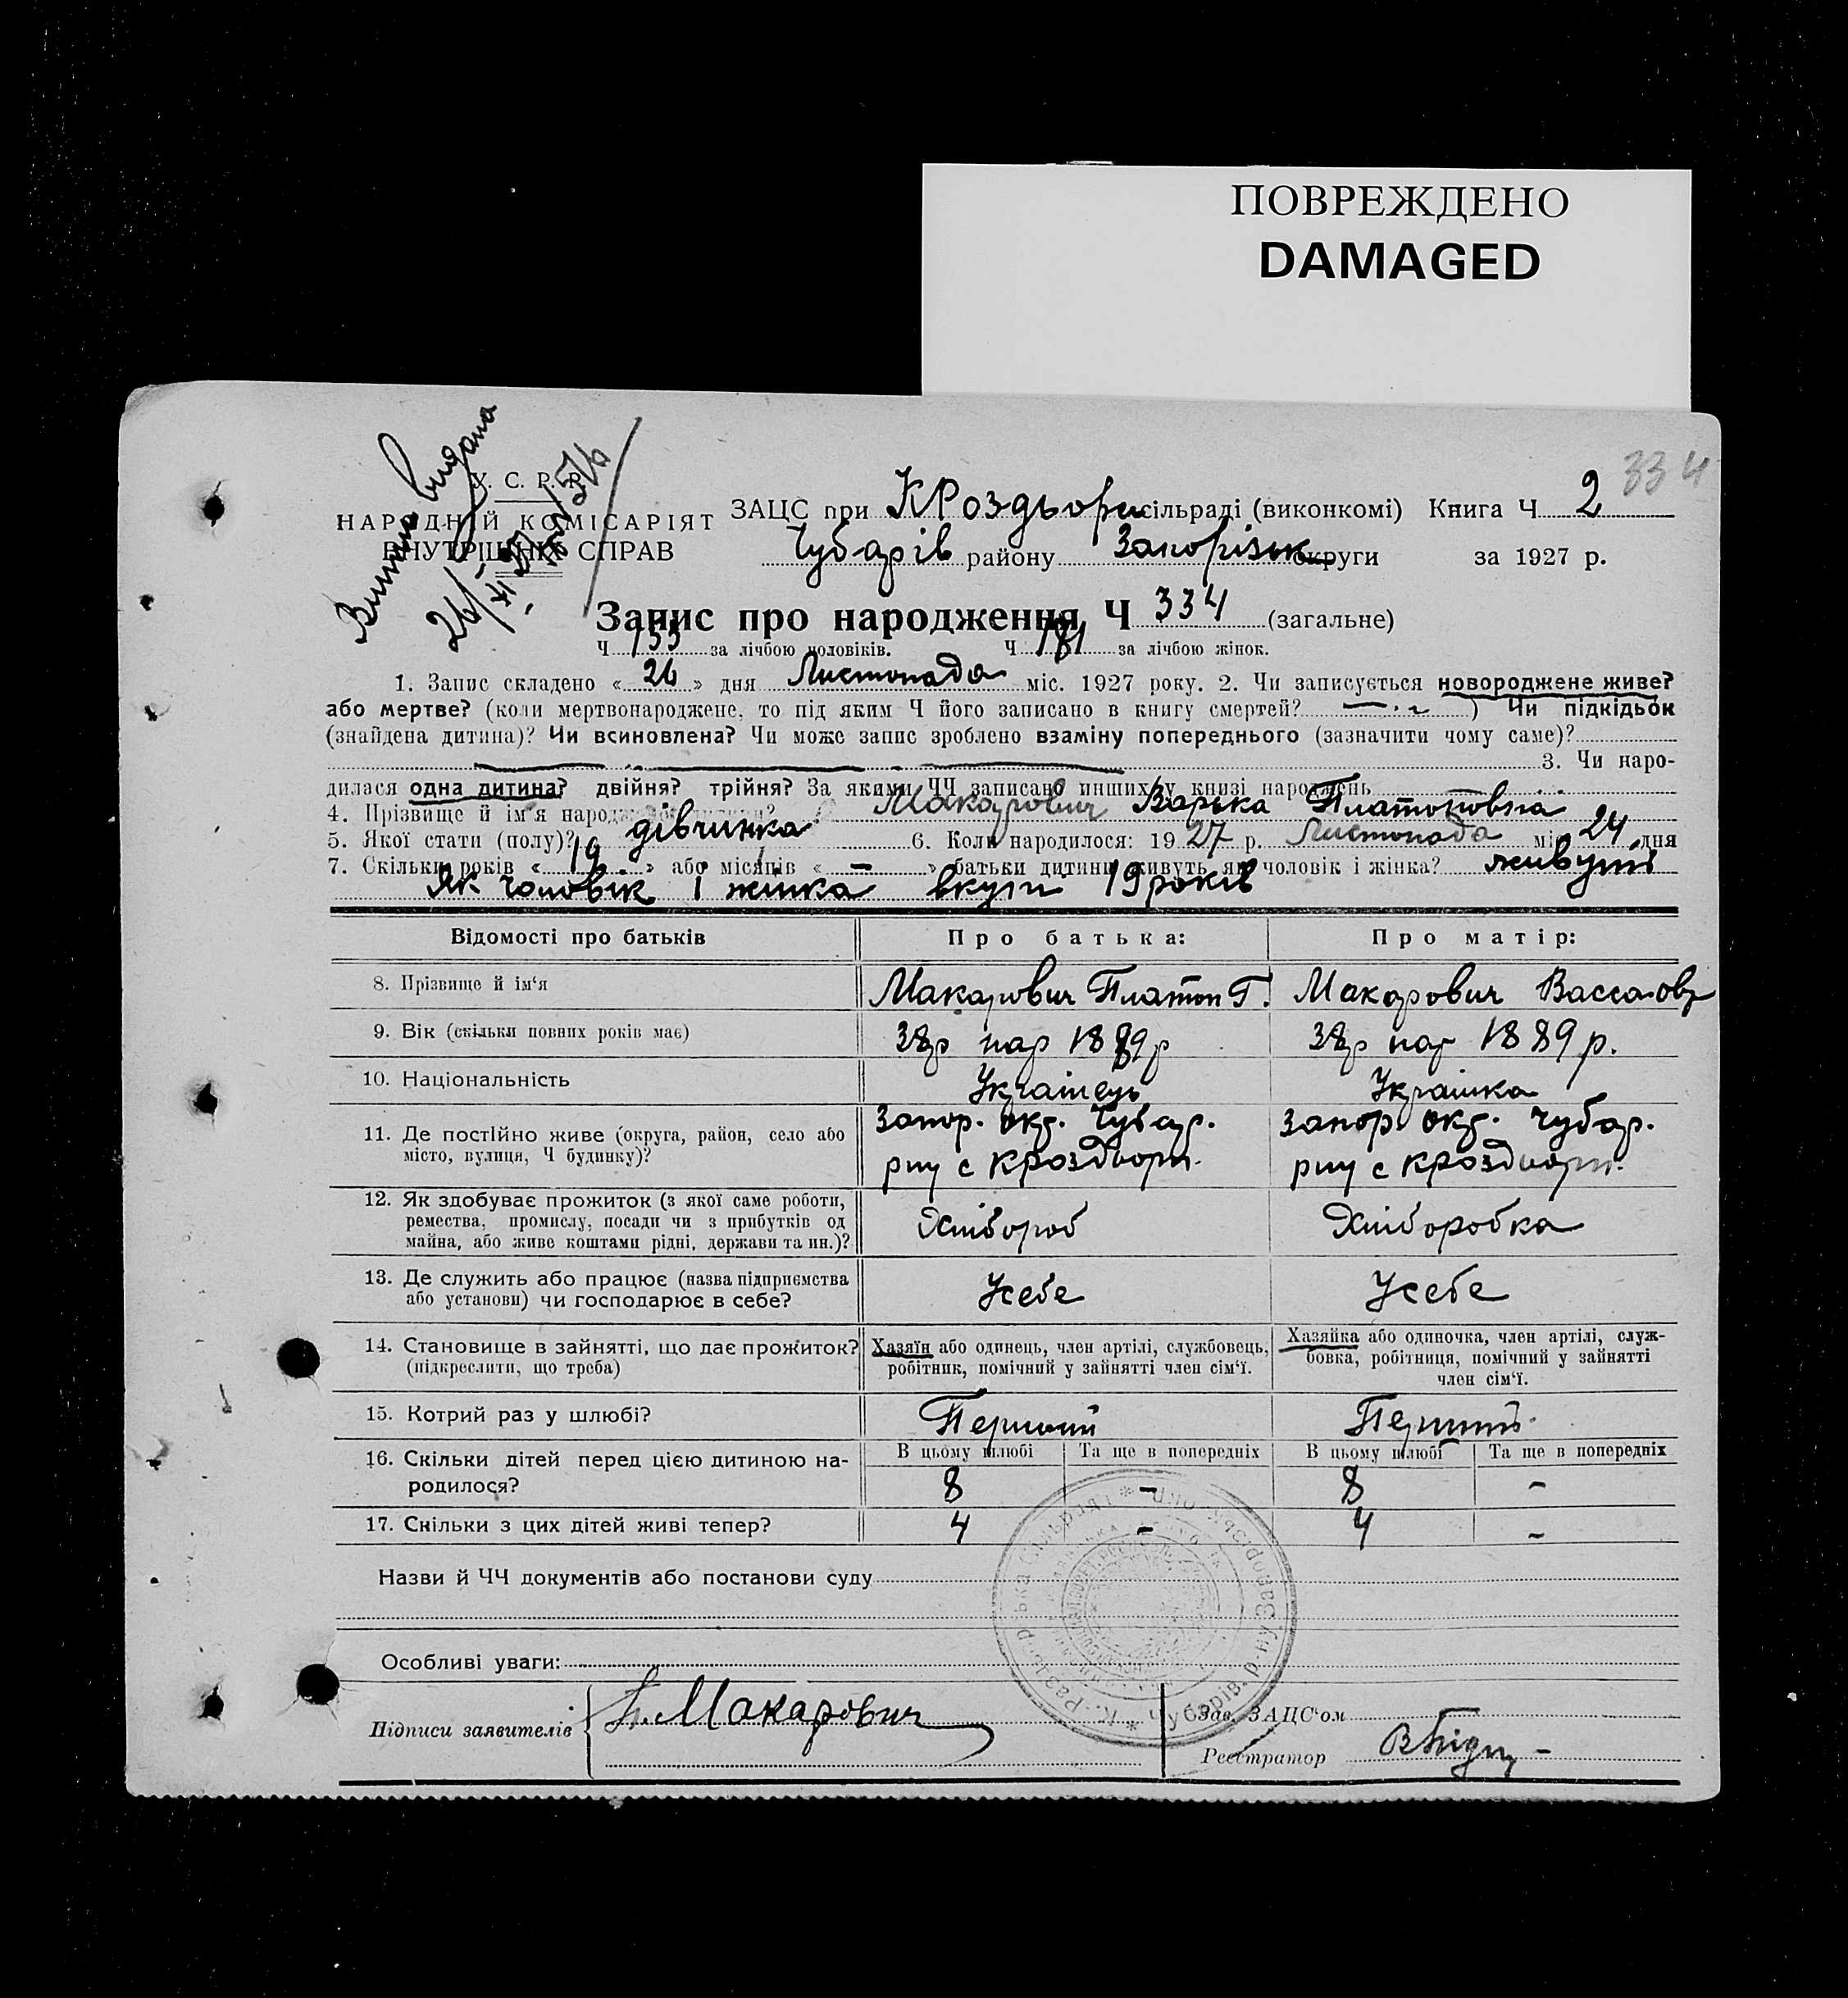 ПОВРЕЖДЕНО
DAMAGED
334
Виписка видана
У. С. Р. Р.
НАРОДНІЙ КОМІСАРІЯТ
ВНУТРІШНІХ СПРАВ
ЗАЦС при КРоздьори сільраді (виконкомі) Книга Ч 2
Чубарів району Запорізьк округи за 1927 р.
Запис про народження Ч 334 (загальне)
Ч 153 за лічбою чоловіків. Ч 181 за лічбою жінок.
1. Запис складено « 26 » дня Листопада міс. 1927 року. 2. Чи записується новороджене живе?
або мертве? (коли мертвонароджене, то під яким Ч його записано в книгу смертей? ) Чи підкідьок
(знайдена дитина)? Чи всиновлена? Чи може запис зроблено взаміну попереднього (зазначити чому саме)?
3. Чи наро-
дилася одна дитина? двійня? трійня? За якими ЧЧ записано инших у книзі народжень
4. Прізвище й ім'я Макарович Варька Платоновна
5. Якої стати (полу)? дівчинка 6. Коли народилося: 1927 р. Листопада міс 24 дня
7. Скільки років « 19 » або місяців « – » батьки дитини живуть як чоловік і жінка? живуть
Як чоловік і жінка вкупі 19 років
Відомості про батьків Про батька: Про матір:
8. Прізвище й ім'я Макарович Платон Г. Макарович Васса
9. Вік (скільки повних років має) 38р нар 1889р 38р нар 1889 р.
10. Національність Українець Українка
11. Де постійно живе (округа, район, село або Запор. окр. Чубар. Запор окр. Чубар.
місто, вулиця, Ч будинку)? рну с Кроздьори. рну с Кроздьори.
12. Як здобуває прожиток (з якої саме роботи,
ремества, промислу, посади чи з прибутків од Хлібороб Хліборобка
майна, або живе коштами рідні, держави та ин.)?
13. Де служить або працює (назва підприємства
або установи) чи господарює в себе? Усебе Усебе
14. Становище в зайнятті, що дає прожиток? Хазяїн або одинець, член артілі, службовець, Хазяйка або одиночка, член артілі, служ-
(підкреслити, що треба) робітник, помічний у зайнятті член сім'ї. бовка, робітниця, помічний у зайнятті
член сім'ї.
15. Котрий раз у шлюбі? Перший Перший
16. Скільки дітей перед цією дитиною на- В цьому шлюбі Та ще в попередніх В цьому шлюбі Та ще в попередніх
родилося? 8 – 8 –
17. Скільки з цих дітей живі тепер? 4 – 4 –
Назви й ЧЧ документів або постанови суду
Особливі уваги:
Підписи заявителів П. Макарович Зав. ЗАЦС'ом
Реєстратор